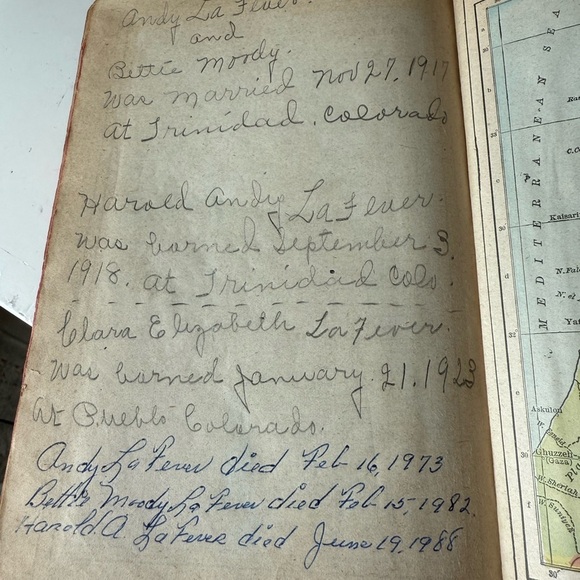 Andy La Fever.
and
Bettie Moody.
Was Married Nov 27, 1917
at Trinidad, Colorado
Harold Andy LaFever.
Was borned September 3,
1918. at Trinidad Colo.
Clara Elizabeth LaFever.
Was borned January 21, 1923
At Pueblo Colorado.
Andy La Fever died Feb 16, 1973
Bettie Moody La Fever died Feb 15, 1982.
Harold A. LaFever died June 19, 1988
MEDITERRANEAN SEA
C. C
Kaisari
N. Fal
N. of
Askulon
W. Hesy
Ghuzzeh
(Gaza)
W. Sheriah
30
32
30°